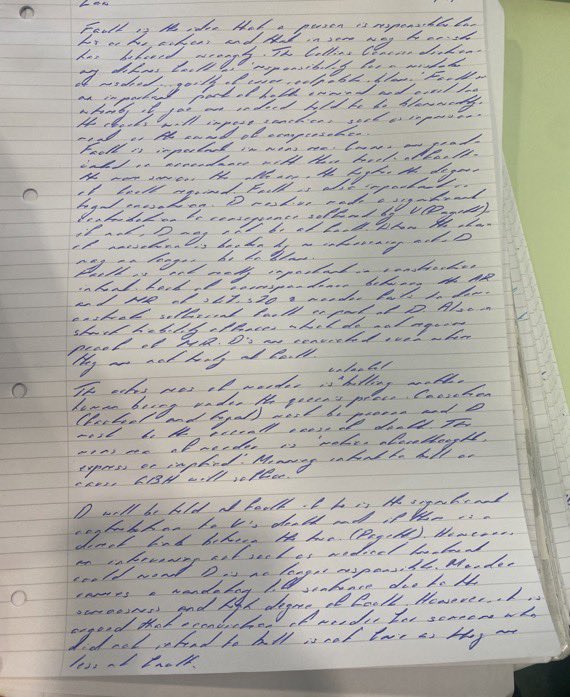 Law
Fault is the idea that a person is responsible for
his or her actions and that in some way he or she
has behaved wrongly. The Collins Concise diction-
ary defines fault as 'responsibility for a mistake
or misdeed, guilty of error, culpable, blame.' Fault is
an important part of both criminal and civil law
whereby if you are indeed held to be blameworthy
the courts will impose sanctions such as imprison-
ment or the award of compensation.
Fault is important in mens rea. Crimes are
in accordance with their level of fault.
the more serious the offence the higher the degree
of fault required. Fault is also important in
legal causation. D must have made a significant
contribution to consequence suffered by V (Pagett)
if not D may not be at fault. Where the chain
of causation is broken by an intervening act D
may no longer be to blame.
Fault is not really important in constructive
lack of correspondence between the AR
and MR of s47, s20 & murder fails to dem-
onstrate sufficient fault on part of D. Also in
strict liability offences which do not require
proof of MR. D's are convicted even where
they are not truly at fault.
unlawful
The actus reus of murder is killing another
human being under the queen's peace. Causation
(factual and legal) must be proven and D
must be the overall cause of death. The
mens rea of murder is 'malice aforethought,
express or implied'. Meaning intent to kill or
cause GBH will suffice.
D will be held at fault if he is the significant
contribution to V's death and if there is a
direct link between the two. (Pagett). However,
an intervening act such as medical treatment
could mean D is no longer responsible. Murder
carries a mandatory life sentence due to the
seriousness and high degree of fault. However, it is
argued that a conviction of murder for someone who
did not intend to kill is not fair as they are
less at fault.